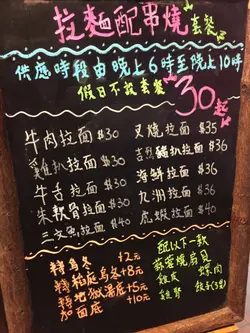 拉麵配串燒套餐
供應時段由晚上6時至晚上10時
假日不設套餐
$30起
牛肉拉面 $30
雞扒拉面 $30
牛舌拉面 $30
朱軟骨拉面 $30
三文魚拉面 $40
叉燒拉面 $35
吉烈豬扒拉面 $36
海鮮拉面 $36
九洲拉面 $36
虎蝦拉面 $40
轉烏冬 +2元
轉稻庭烏冬 +8元
轉地獄湯底 +5元
加面底 +10元
配以下一款
蒜蓉燒扇貝
雞皮 螺肉